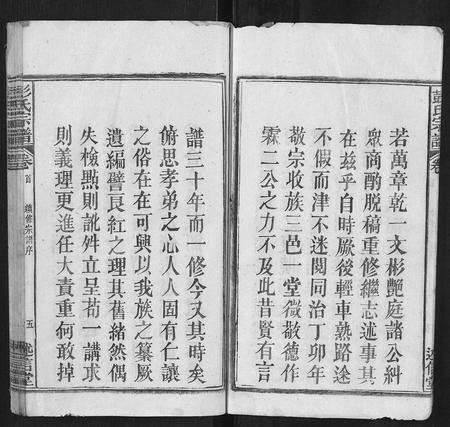 若萬章乾一文彬艷庭諸公糾
衆商酌脫稿重修繼志述事其
在兹乎自時厥後輕車熟路途
不假而津不迷閱同治丁卯年
敬宗收族三邑一堂微敬德作
霖二公之力不及此昔賢有言
譜三十年而一修今又其時矣
俯思孝弟之心人人固有仁讓
之俗在在可興以我族之纂厥
遺編譬艮紅之理其舊緒然偶
失檢㸃則訛舛立呈苟一講求
則義理更進任大責重何敢掉
彭氏宗譜
卷首
續修宗譜序
五
述信堂